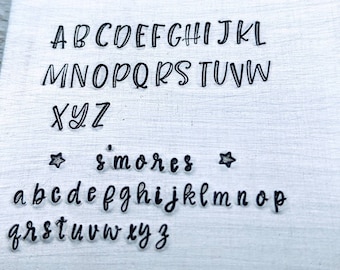 ABCDEFGHIJKL
MNOPQRSTUVW
XYZ
s'mores
abcdefghijklmnop
qrstuvwxyz